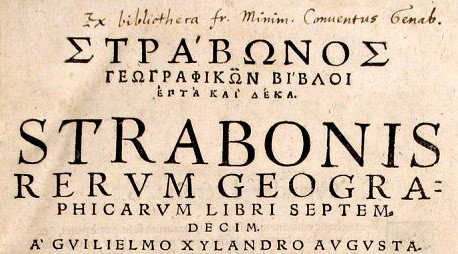 Ex bibliotheca fr. Minim. Conventus Genab.
ΣΤΡΑ´ΒΩΝΟΣ
ΓΕΩΓΡΑΦΙΚΩ͂Ν ΒΙ´ΒΛΟΙ
ἙΠΤᾺ ΚΑῚ ΔΈΚΑ.
STRABONIS
RERVM GEOGRA=
PHICARVM LIBRI SEPTEM
DECIM.
A' GVILIELMO XYLANDRO AVGVSTA-